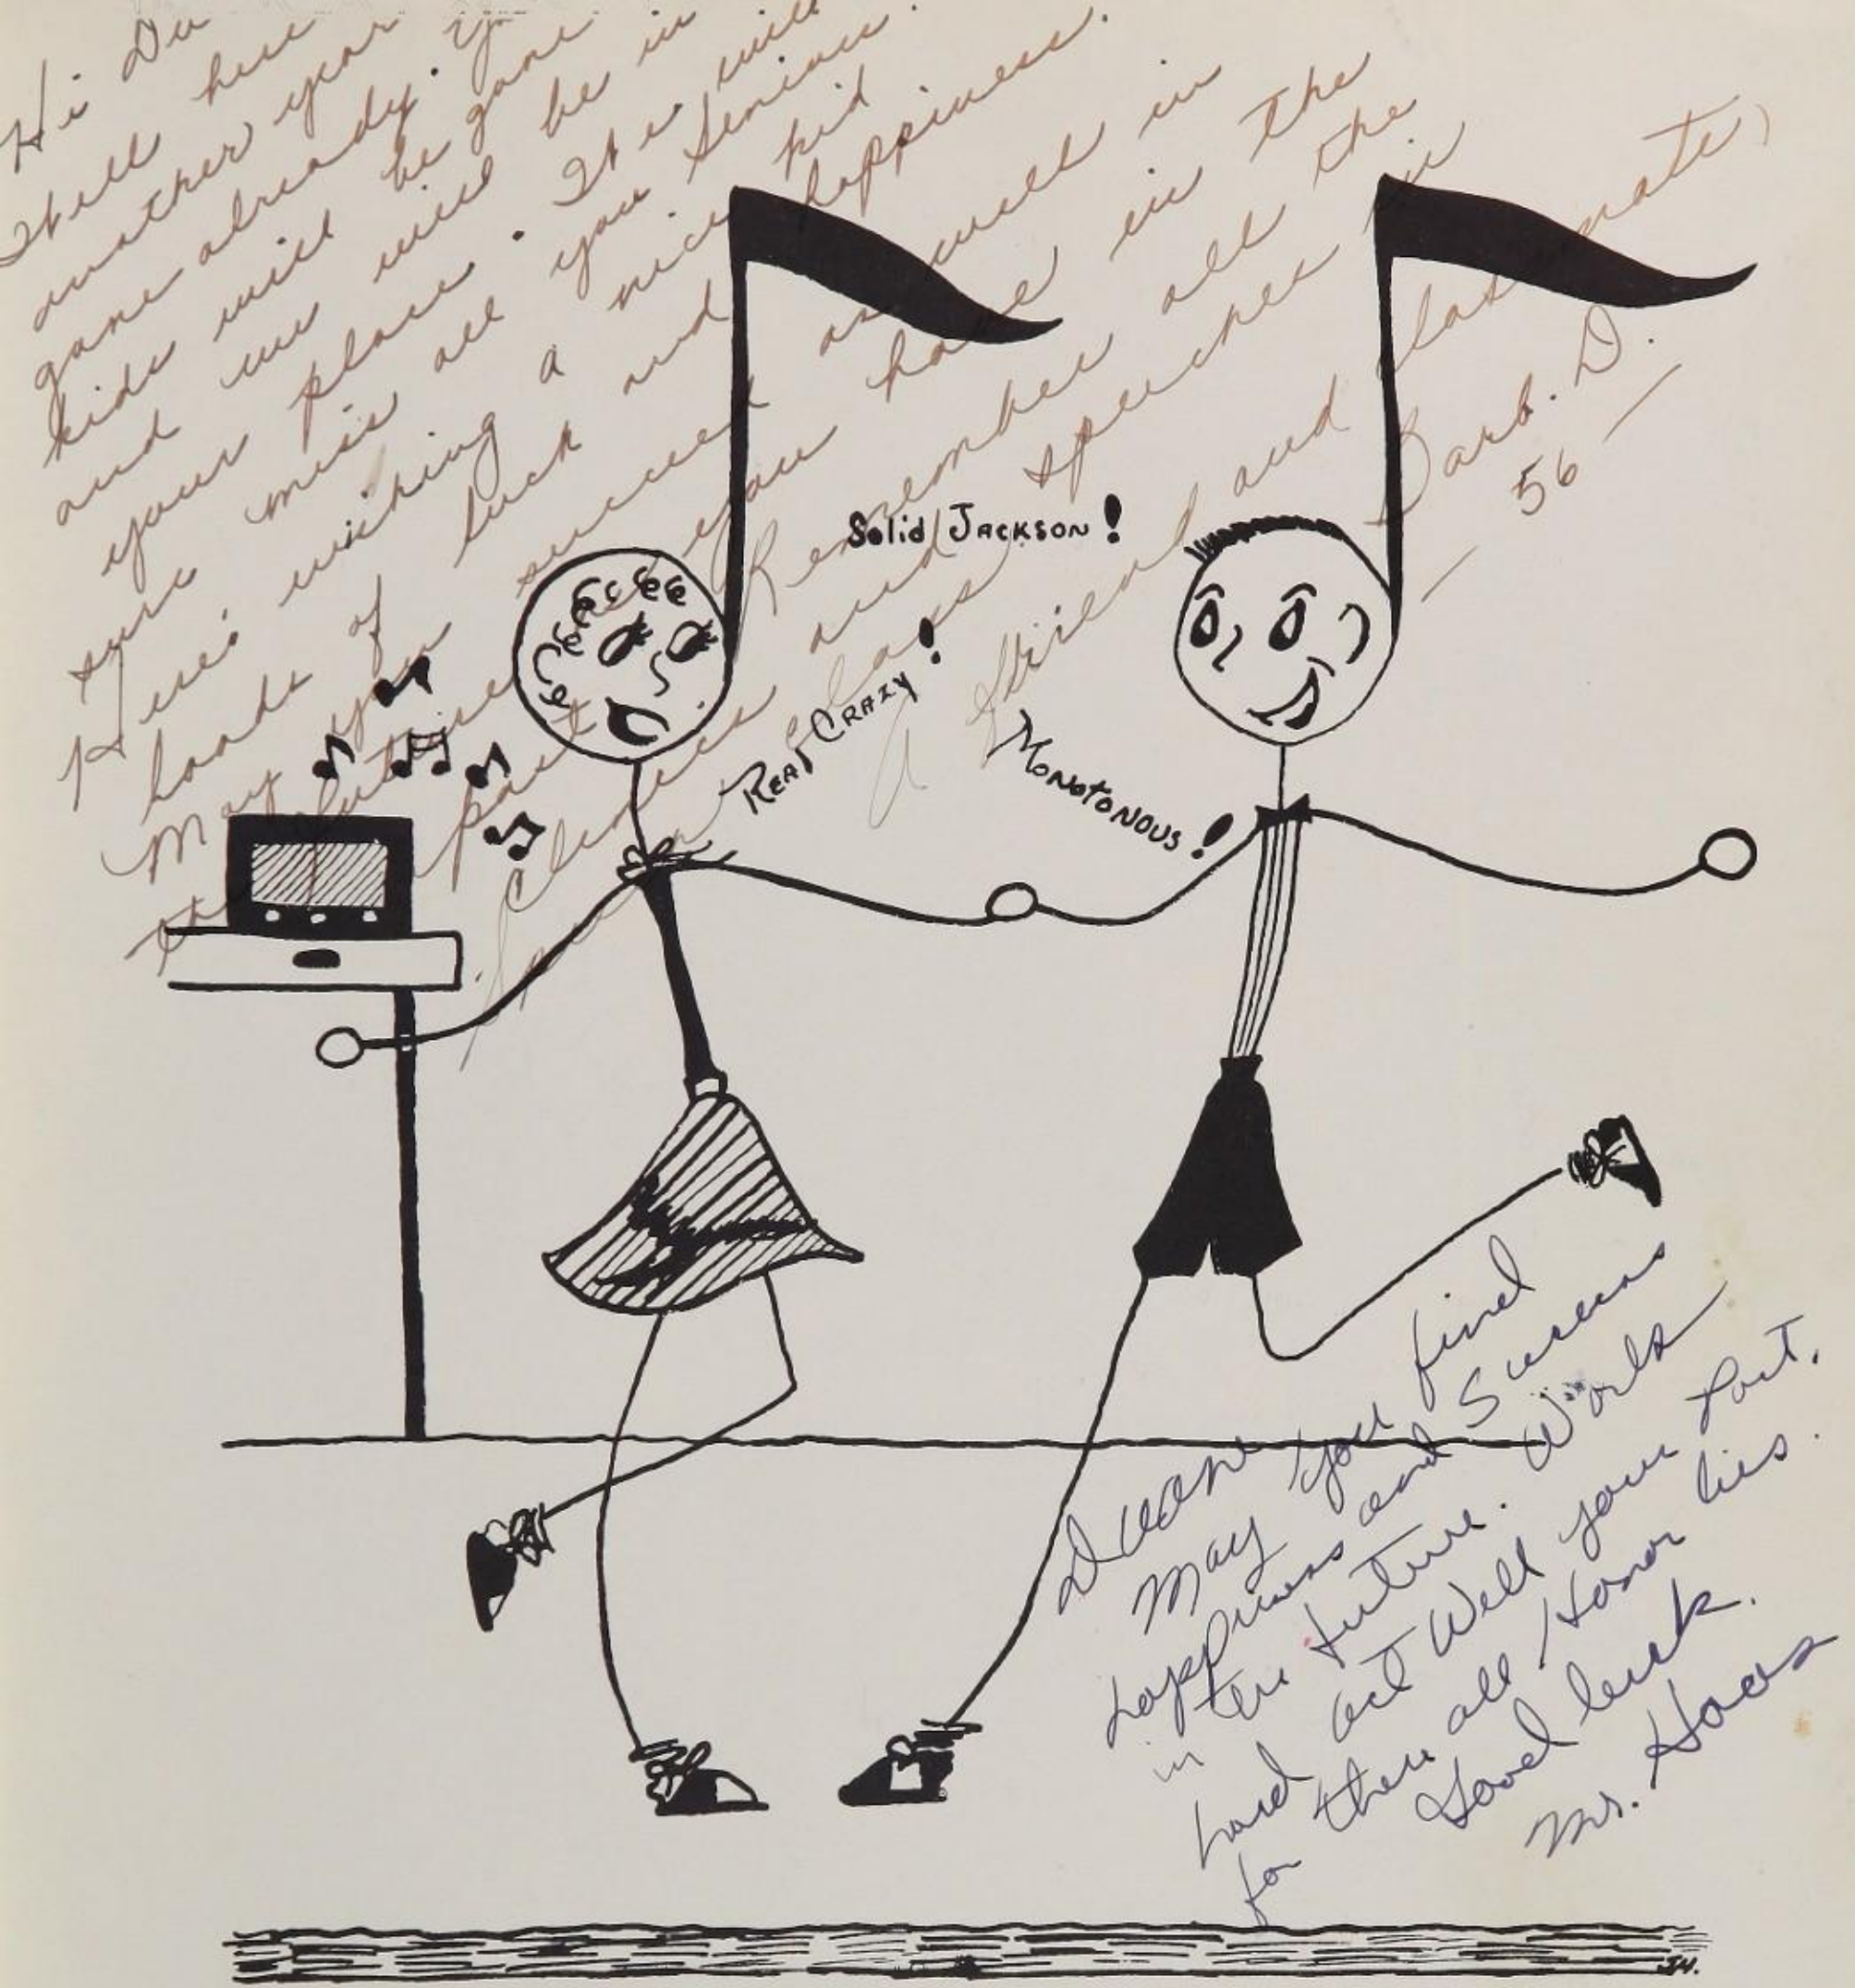 Hi Du
Well here
another year
gone already. you
kids will be gone
and we will be in
your place. It will
sure miss all you Seniors.
Here's wishing a nice kid
loads of luck and happiness.
May you succeed as well in
the future as you have in the
past Remember all the
and speeches in
class
A friend and classmate,
Barb. D.
— 56 —
Solid JACKSON!
REAL CRAZY!
MONOTONOUS!
Duane
May you find
happiness and Success
in the future. Work
hard act Well your Part,
for there all Honor lies.
Good luck.
Mr. Haas
JW.